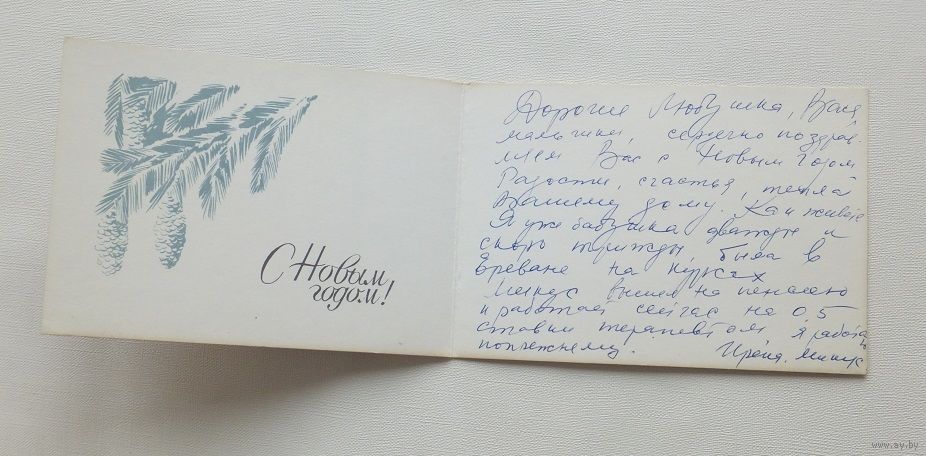 С Новым
годом!
Дорогие Любушка, Вася,
мальчики, сердечно поздрав-
ляем Вас с Новым Годом
Радости, счастья, тепла
Вашему дому. Как живёте
Я уже бабушка дважды и
скоро трижды, была в
Ереване на курсах
Минус вышел на пенсию
и работает сейчас на 0,5
ставки терапевтом я работаю
попрежнему. Ирена, Минус
www.ay.by